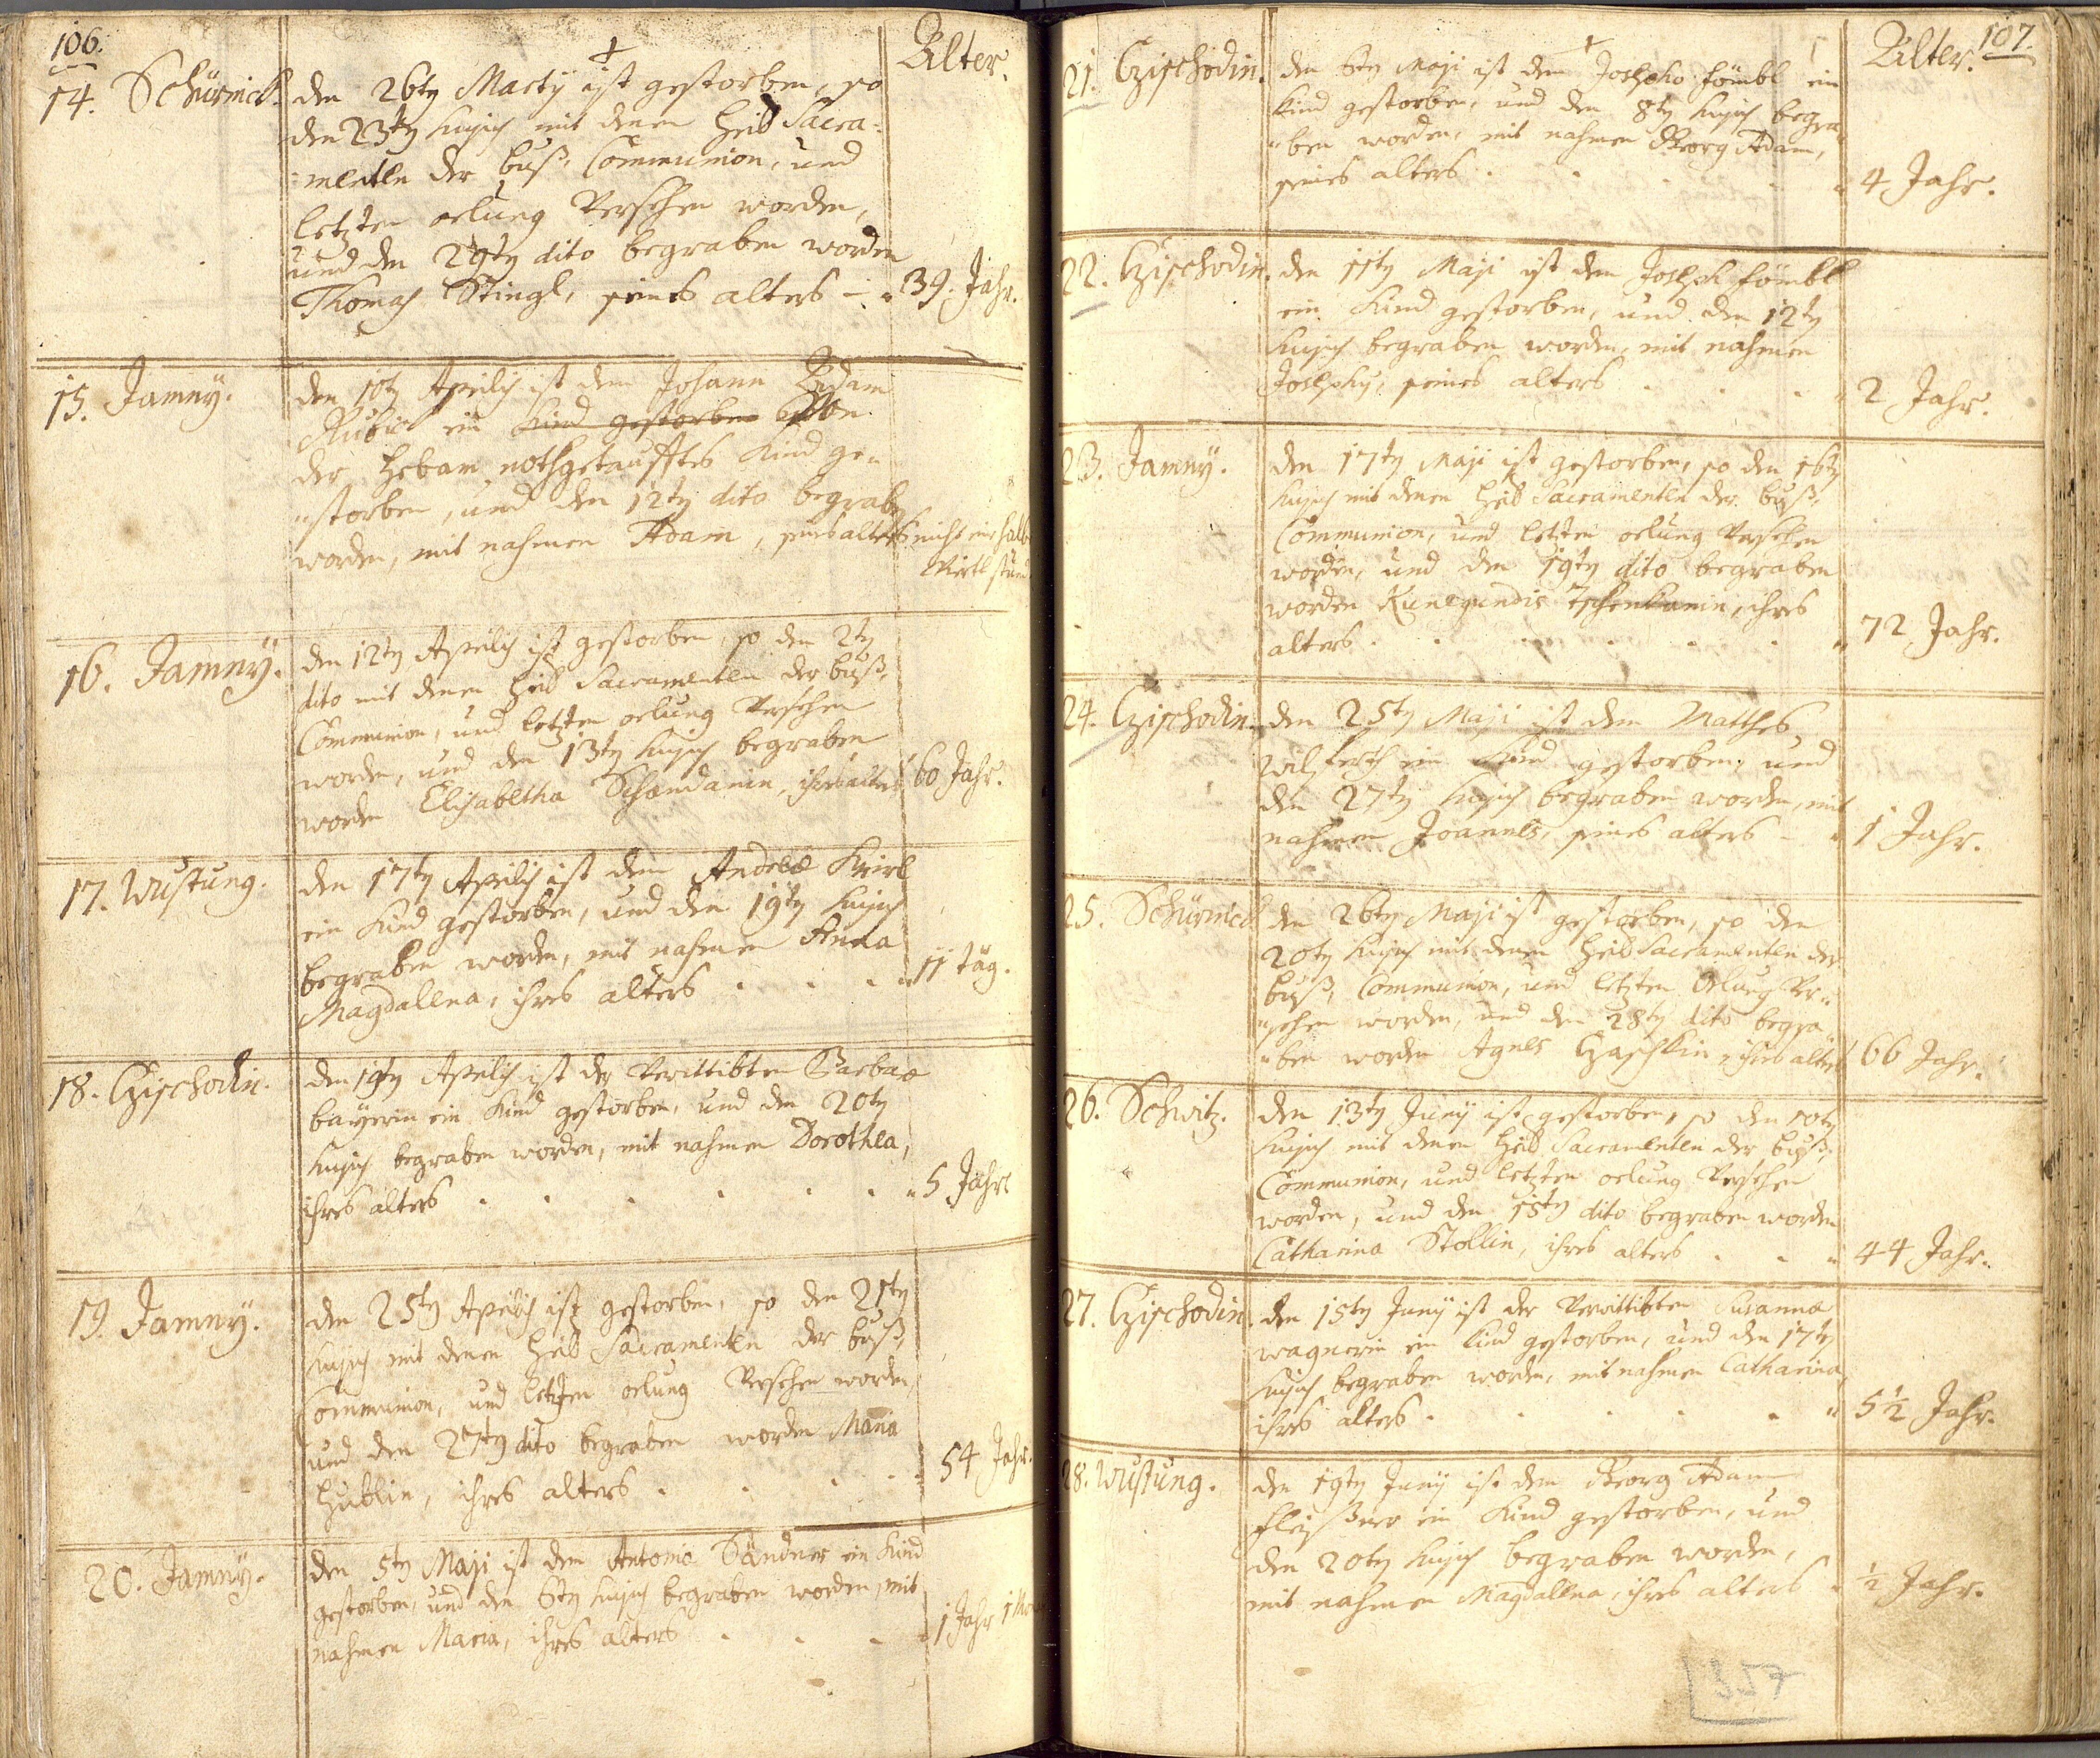 106.
Alter.
14. Schürnick. den 26ty Marty ist gestorben, so
den 23ty hujus mit denen heil Sacra-
menten der buß, Communion, und
letzten oelung Versehen worden,
und den 29ty dito begraben worden
Thomas Stingl, seines alters - 39. Jahr.
15. Jamny. den 10ty Aprilis ist dem Johann Adam
ein Kind gestorben
der hebam nothgetaufftes Kind ge-
storben, und den 12ty dito begraben
worden, mit nahmen Adam, seines alters nicht ein halb
Viertl stund
16. Jamny. den 12ty Aprilis ist gestorben, so den 2ty
dito mit denen heil Sacramenten der buß,
Communion, und letzten oelung Versehen
worden, und den 13ty hujus begraben
worden Elisabetha Schandanin, ihres alters 60 Jahr.
17. Wustung. den 17ty Aprilis ist dem Andreæ
ein Kind gestorben, und den 19ty hujus
begraben worden, mit nahmen Anna
Magdallena, ihres alters . . . 11 täg.
18. Czischodin. den 19ty Aprilis ist der Verwittibten Barbaæ
bayerin ein Kind gestorben, und den 20ty
hujus begraben worden, mit nahmen Dorothea,
ihres alters . . . . . . 5 Jahr
19. Jamny. den 25ty Aprilis ist gestorben, so den 21ty
hujus mit denen heil Sacramenten der buß,
Communion, und letzten oelung Versehen worden,
und den 27ty dito begraben worden Maria
Hublin, ihres alters . . . . 54 Jahr.
20. Jamny. den 5ty Maji ist dem Antonio Sandner ein Kind
gestorben, und den 6ty hujus begraben worden, mit
nahmen Maria, ihres alters . . . 1 Jahr 1
107.
Alter.
21. Czischodin. den 6ty Maji ist dem Josepho Hömbl ein
Kind gestorben, und den 8ty hujus begra-
ben worden, mit nahmen Georg Adam,
seines alters . . . . 4 Jahr.
22. Czischodin. den 11ty Maji ist dem Joseph Hömbl
ein Kind gestorben, und den 12ty
hujus begraben worden, mit nahmen
Josephus, seines alters . . . 2 Jahr.
23. Jamny. den 17ty Maji ist gestorben, so den 16ty
hujus mit denen heil Sacramenten der buß,
Communion, und letzten oelung Versehen
worden, und den 19ty dito begraben
worden Kunegundis Tschenkanin, ihres
alters . . . . . . 72 Jahr.
24. Czischodin. den 25ty Maji ist dem Matthes
ein Kind gestorben, und
den 27ty hujus begraben worden, mit
nahmen Joannes, seines alters - 1 Jahr.
25. Schürnick den 26ty Maji ist gestorben, so den
20ty hujus mit denen heil Sacramenten der
buß, Communion, und letzten Oelung Ver-
sehen worden, und den 28ty dito begra-
ben worden Agnes Czaschkin, ihres alters 66 Jahr.
26. Schwitz. den 13ty Juny ist gestorben, so den 10ty
hujus mit denen heil Sacramenten der buß,
Communion, und letzten oelung Versehen
worden, und den 15ty dito begraben worden
Catharina Stollin, ihres alters . . 44 Jahr.
27. Czischodin. den 15ty Juny ist der Verwittibten Susanna
wagnerin ein Kind gestorben, und den 17ty
hujus begraben worden, mit nahmen Catharina,
ihres alters . . . . . 5½ Jahr.
28. Wustung. den 19ty Juny ist dem Georg Adam
Fleißner ein Kind gestorben, und
den 20ty hujus begraben worden,
mit nahmen Magdallena, ihres alters ½ Jahr.
357